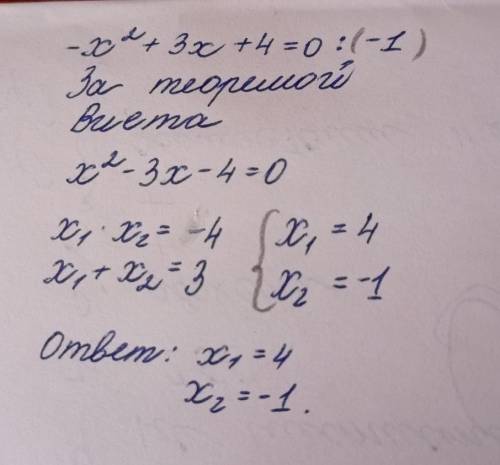 -x² + 3x + 4 = 0 : (-1)
За теоремой
Виета
x² - 3x - 4 = 0
x₁ · x₂ = -4 { x₁ = 4
x₁ + x₂ = 3 { x₂ = -1
Ответ: x₁ = 4
x₂ = -1.